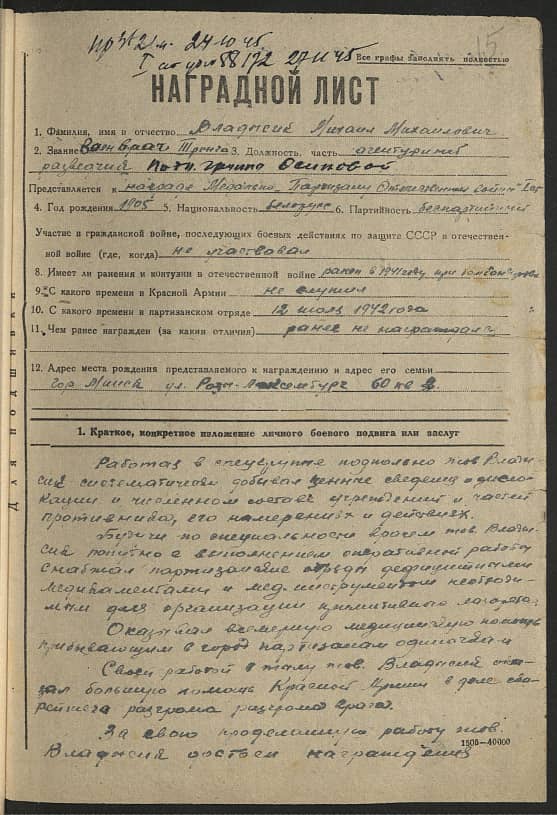 24-10-45
27 II 45
Все графы заполнять полностью
15
НАГРАДНОЙ ЛИСТ
1. Фамилия, имя и отчество Владысик Михаил Михайлович
2. Звание Воен врач 3. Должность, часть агентурный
разведчик группа Осиповой
Представляется к награде Медалью Партизану Отечественной войны 2 ст
4. Год рождения 1905 5. Национальность белорус 6. Партийность беспартийный
Участие в гражданской войне, последующих боевых действиях по защите СССР и отечествен-
ной войне (где, когда) не участвовал
8. Имеет ли ранения и контузии в отечественной войне ранен в 1941 году при
9. С какого времени в Красной Армии не служил
10. С какого времени в партизанском отряде 12 июль 1942 года
11. Чем ранее награжден (за какие отличия) ранее не награждался
12. Адрес места рождения представляемого к награждению и адрес его семьи
гор. Минск ул. Розы Люксембург 60 кв
Для подшивки
1. Краткое, конкретное изложение личного боевого подвига или заслуг
Работая в спецгруппе подпольно тов Влады-
сик систематически добывал ценные сведения о дисло-
кации и численном составе учреждений и частей
противника, его намерениях и действиях.
Будучи по специальности врачем тов. Влады-
сик попутно с выполнением оперативной работы
снабжал партизанские отряды дефицитными
медикаментами и мед.инструментом необходи-
мым для организации
Оказывал всемерную медицинскую помощь
прибывающим в город партизанам одиночкам
Своей работой в тылу тов. Владысик ока-
зал большую помощь Красной Армии в деле ско-
рейшего разгрома разгрома врага.
За свою проделанную работу тов.
Владысик достоен награждения
1505—40000